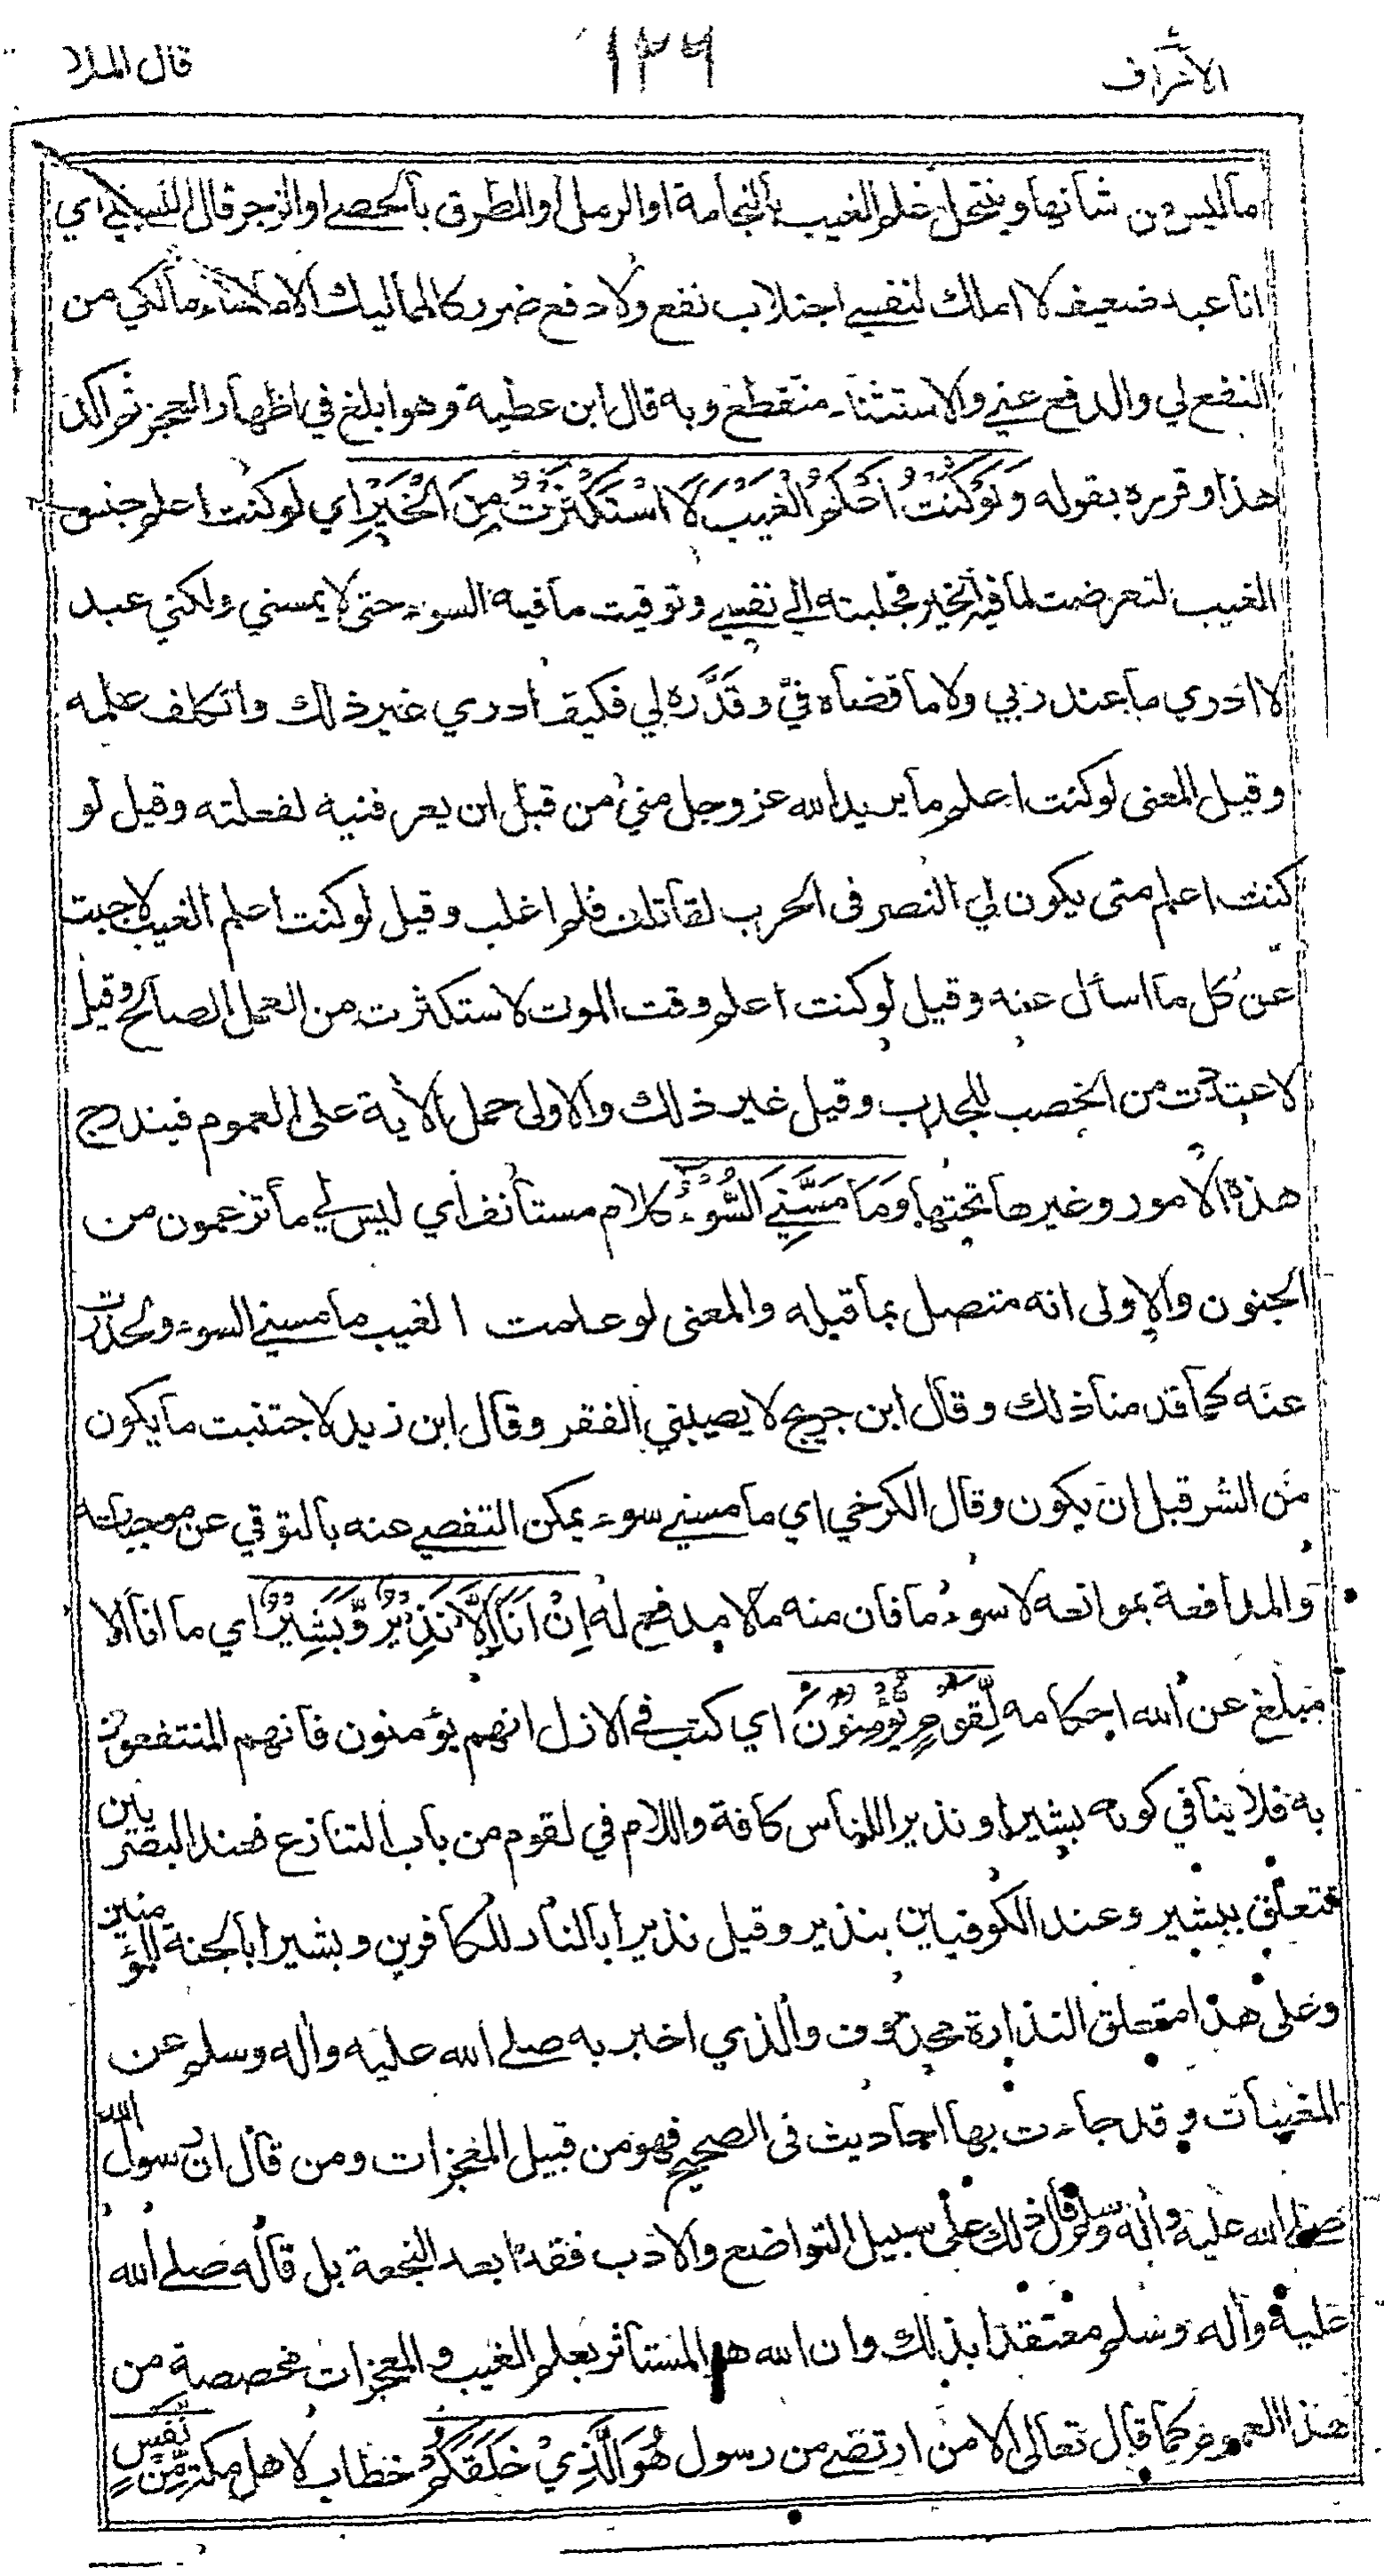 الأعراف
١٢٦
قال الملأ
ما ليس من شأنها وينتحل علم الغيب بالنجامة او الرمل او الطرق بالحصى او الزجر قال النسفي اي
انا عبد ضعيف لا املك لنفسي اجتلاب نفع ولا دفع ضرر كالمماليك الا ما شاء مالكي من
النفع لي والدفع عني والاستثناء منقطع وبه قال ابن عطية وهو ابلغ في اظهار العجز ثم اكد
هذا وقرره بقوله وَلَوْ كُنْتُ اَعْلَمُ الْغَيْبَ لَا اسْتَكْثَرْتُ مِنَ الْخَيْرِ اي لو كنت اعلم جنس
الغيب لتعرضت لما فيه الخير فجلبته الي نفسي وتوقيت ما فيه السوء حتى لا يمسني ولكني عبد
لا ادري ما عند ربي ولا ما قضاه فيّ وقدَّره لي فكيف ادري غير ذلك واتكلف علمه
وقيل المعنى لو كنت اعلم ما يريد الله عز وجل مني من قبل ان يعرفنيه لفعلته وقيل لو
كنت اعلم متى يكون لي النصر فى الحرب لقاتلت فلم اغلب وقيل لو كنت اعلم الغيب لاجبت
عن كل ما اسأل عنه وقيل لو كنت اعلم وقت الموت لاستكثرت من العمل الصالح وقيل
لاعتدت من الخصب للجدب وقيل غير ذلك والاولى حمل الأية على العموم فيندرج
هذه الامور وغيرها تحتها وَمَا مَسَّنِيَ السُّوْءُ كلام مستأنف أي ليس لي ما تزعمون من
الجنون والاولى انه متصل بما قبله والمعنى لو علمت الغيب ما مسني السوء ولحذرت
عنه كما قدمنا ذلك وقال ابن جريج لا يصيبني الفقر وقال ابن زيد لاجتنبت ما يكون
من الشر قبل ان يكون وقال الكرخي اي ما مسني سوء يمكن التفصي عنه بالتوقي عن موجباته
والمدافعة بموانعه لا سوء ما فان منه ما لا مدفع له اِنْ اَنَا اِلَّا نَذِيْرٌ وَّبَشِيْرٌ اي ما انا الا
مبلغ عن الله احكامه لِّقَوْمٍ يُّؤْمِنُوْنَ اي كتب في الازل انهم يؤمنون فانهم المنتفعون
به فلا ينافي كونه بشيرا ونذيرا للناس كافة واللام في لقوم من باب التنازع فعند البصريين
متعلق ببشير وعند الكوفيين بنذير وقيل نذيرا بالنار للكافرين وبشيرا بالجنة للمؤمنين
وعلى هذا متعلق النذارة محذوف والذي اخبر به صلى الله عليه وأله وسلم عن
المغيبات وقد جاءت بها احاديث فى الصحيح فهو من قبيل المعجزات ومن قال ان رسول الله
صلى الله عليه وأله وسلم قال ذلك على سبيل التواضع والادب فقد ابعد النجعة بل قاله صلى الله
عليه وأله وسلم معتقدا بذلك وان الله هو المستأثر بعلم الغيب والمعجزات مخصصة من
هذا العموم كما قال تعالى الا من ارتضى من رسول هُوَ الَّذِيْ خَلَقَكُمْ خطاب لاهل مكة مِّنْ نَّفْسٍ